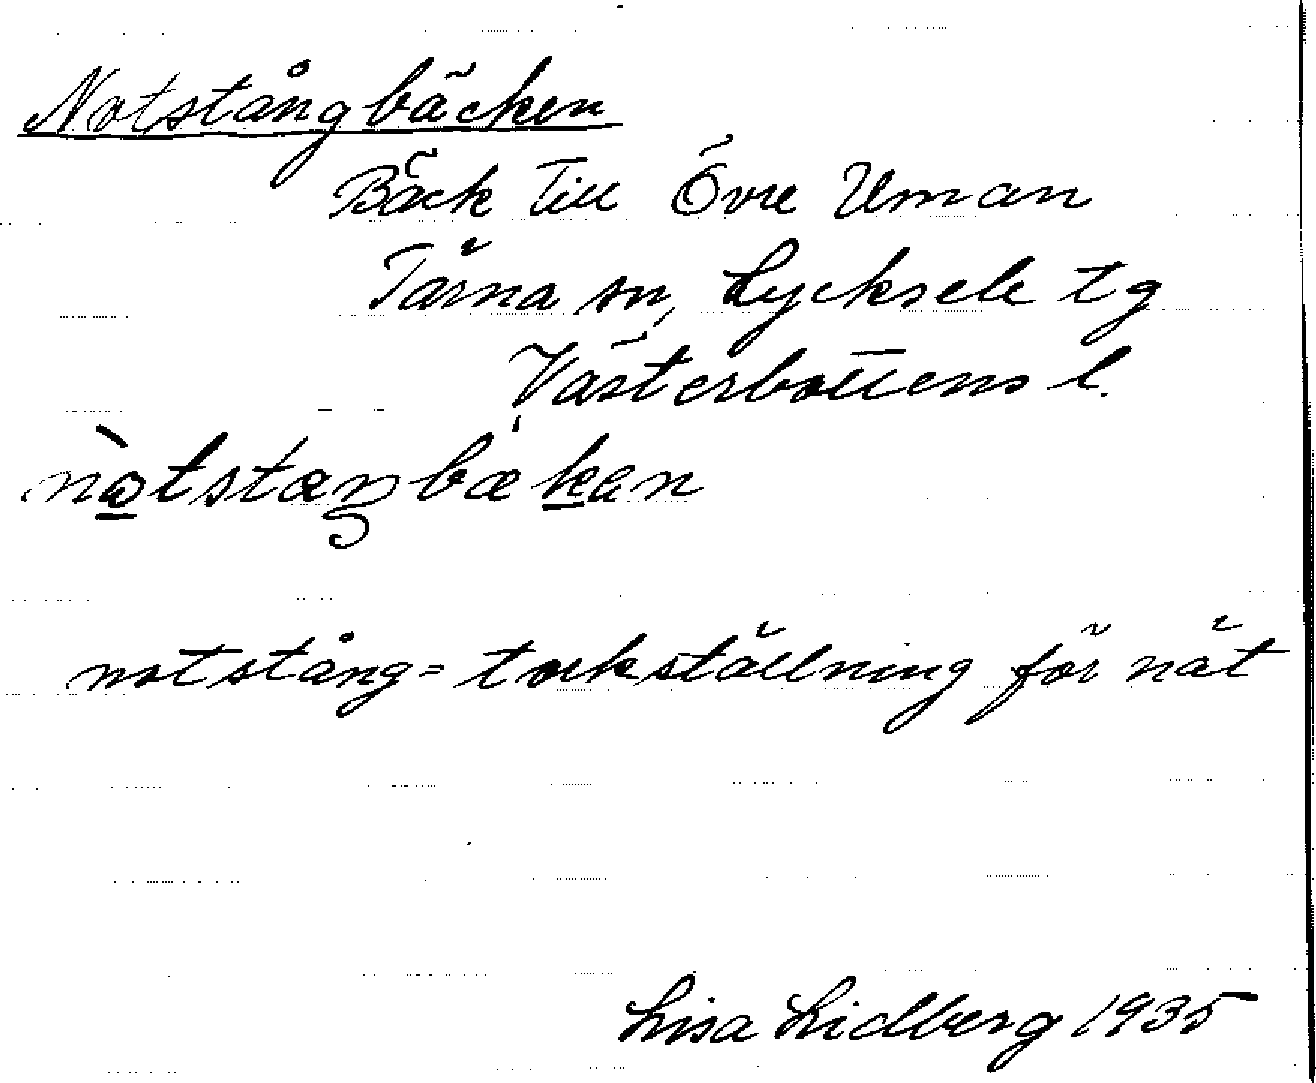 Notstångbäcken
Bäck till Övre Uman
Tärna sn, Lycksele tg
Västerbottens l.
nòtstæŋbækan
notstång = torkställning för nät
Lisa Lidberg 1935